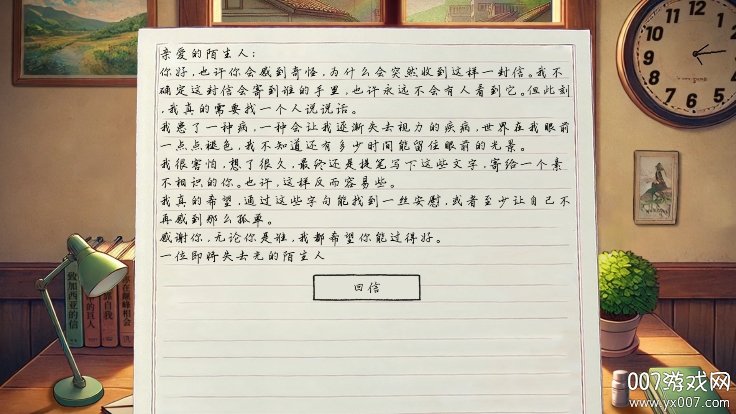 亲爱的陌生人：
你好，也许你会感到奇怪，为什么会突然收到这样一封信。我不
确定这封信会寄到谁的手里，也许永远不会有人看到它。但此刻
，我真的需要找一个人说说话。
我患了一种病，一种会让我逐渐失去视力的疾病，世界在我眼前
一点点褪色，我不知道还有多少时间能留住眼前的光景。
我很害怕，想了很久，最终还是提笔写下这些文字，寄给一个素
不相识的你。也许，这样反而容易些。
我真的希望，通过这些字句能找到一丝安慰，或者至少让自己不
再感到那么孤单。
感谢你，无论你是谁，我都希望你能过得好。
一位即将失去光的陌生人
回信
致加西亚的信
中的巨人
靠自我
在巅峰相会
12
1
2
3
4
5
6
7
8
9
10
11
007游戏网
www.yx007.com